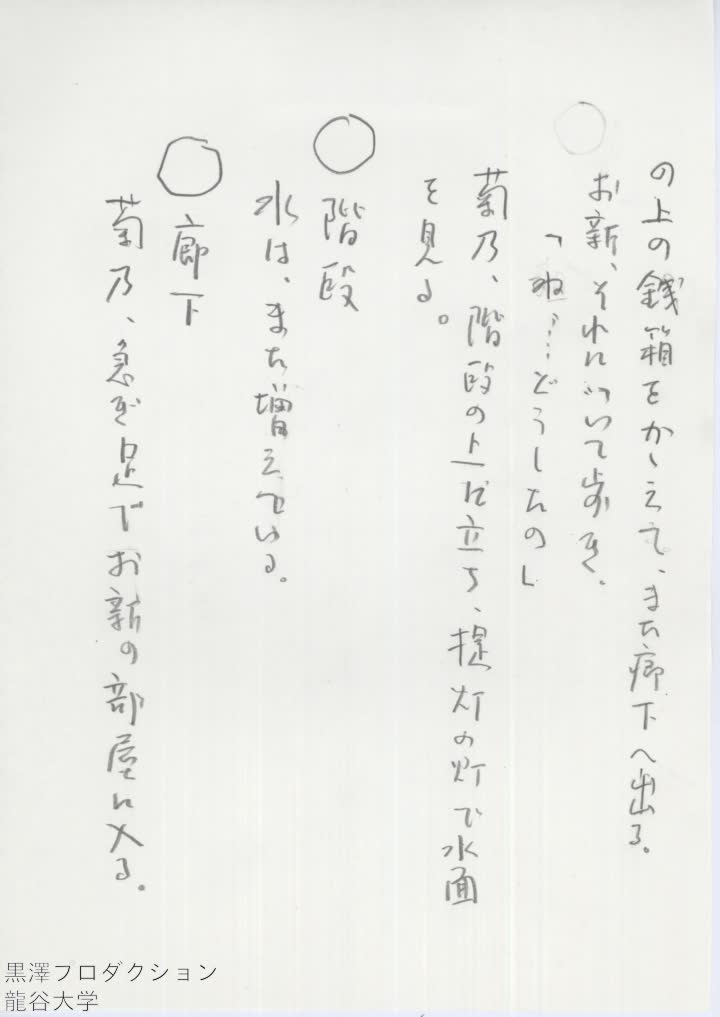 の上の銭箱をかゝえて、また廊下へ出る。
お新、それについて歩き、
「ね……どうしたの」
菊乃、階段の上に立ち、提灯の灯で水面
を見る。
○階段
水は、また増えている。
○廊下
菊乃、急ぎ足でお新の部屋に入る。
黒澤プロダクション
龍谷大学